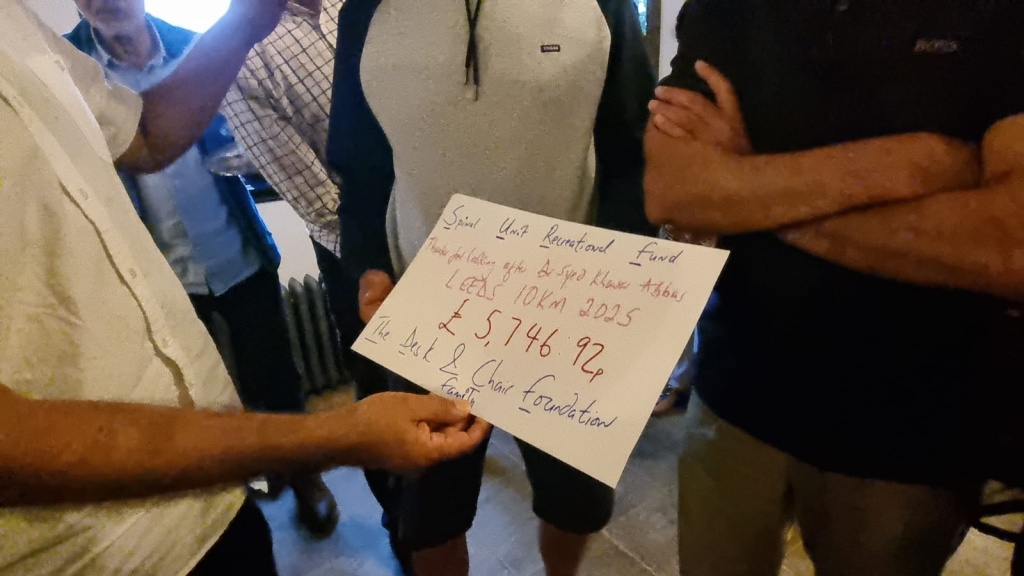 Spinal Unit Recreational Fund
Thanks for looking after Dr Syed Khawar Abbas
LEEDS 10KM 2025
£ 5,746.92p
The Desk & Chair Foundation
Family
BOSS